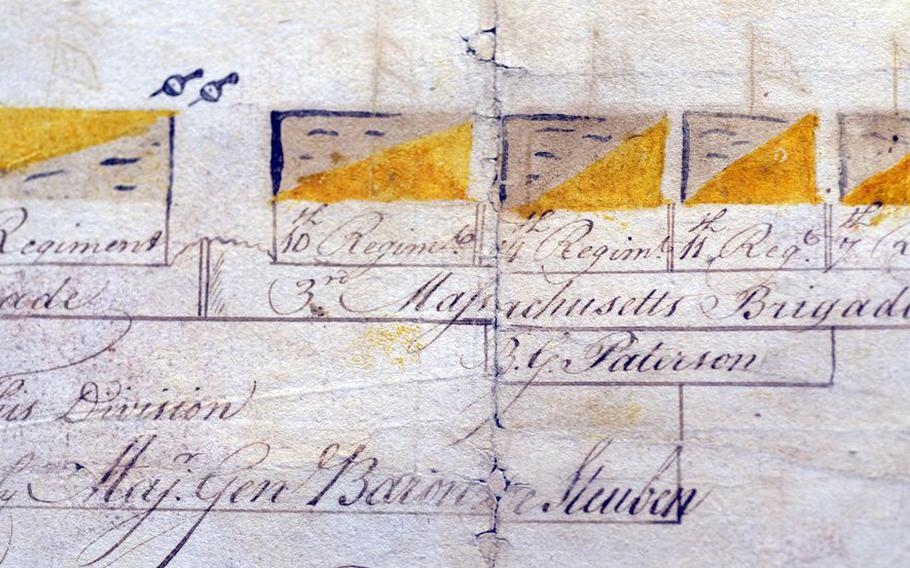 Regiment 10th Regimt. 4th Regimt 11th Regt. 7th
ade 3rd Massachusetts Brigade
B.G. Paterson
his Division
by Maj.r Gen Baron de Steuben